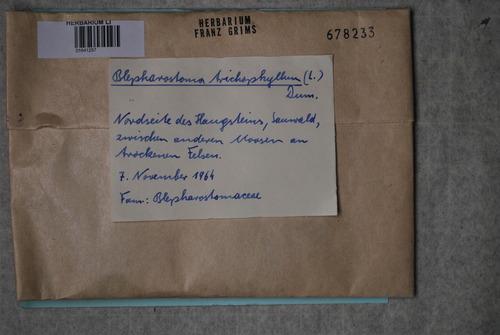 HERBARIUM LI
HERBARIUM
FRANZ GRIMS
678233
Blepharostoma trichophyllum (L.)
Dum.
Nordseite des Haugsteins, Sauwald,
zwischen anderen Moosen an
trockenen Felsen.
7. November 1964
Fam: Blepharostomaceae